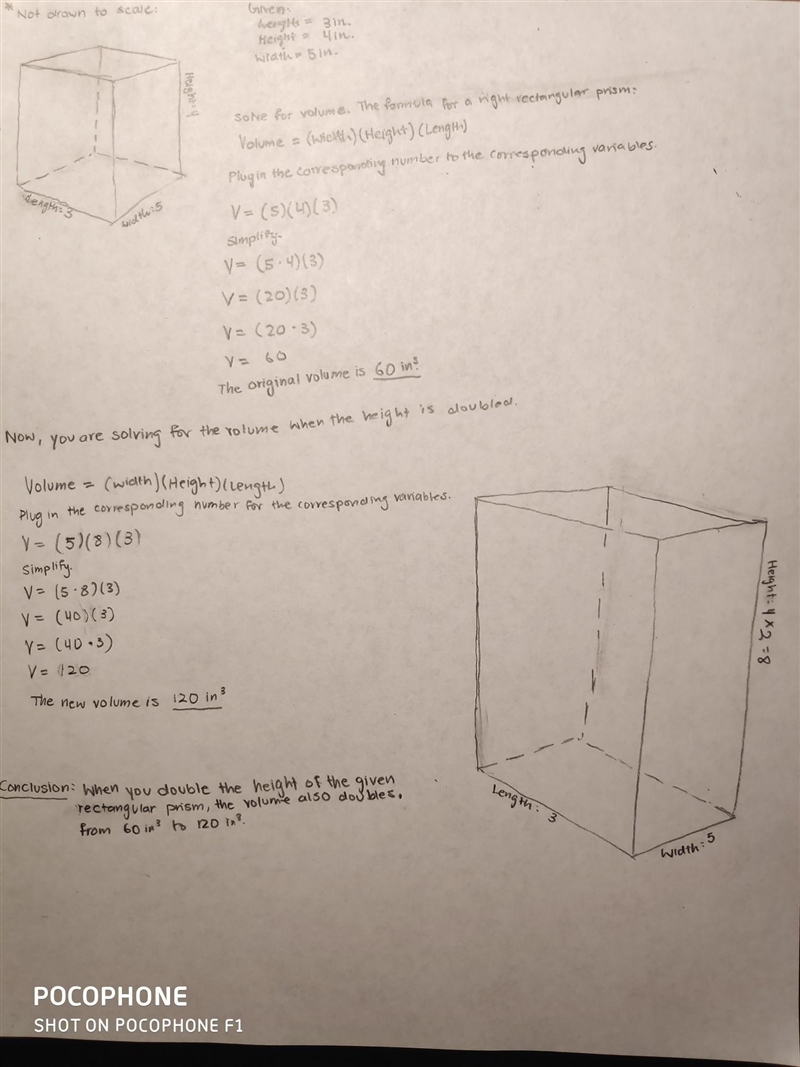 * Not drawn to scale:
Given:
Length = 3in.
Height = 4in.
Width = 5in.
Height: 4
Length: 3
Width: 5
Solve for volume. The formula for a right rectangular prism:
Volume = (Width)(Height)(Length)
Plug in the corresponding number to the corresponding variables.
V = (5)(4)(3)
Simplify.
V = (5 · 4)(3)
V = (20)(3)
V = (20 · 3)
V = 60
The original volume is 60 in³.
Now, you are solving for the volume when the height is doubled.
Volume = (Width)(Height)(Length)
Plug in the corresponding number for the corresponding variables.
V = (5)(8)(3)
Simplify.
V = (5 · 8)(3)
V = (40)(3)
V = (40 · 3)
V = 120
The new volume is 120 in³
Height: 4 x 2 = 8
Length: 3
Width: 5
Conclusion: When you double the height of the given
rectangular prism, the volume also doubles,
from 60 in³ to 120 in³.
POCOPHONE
SHOT ON POCOPHONE F1